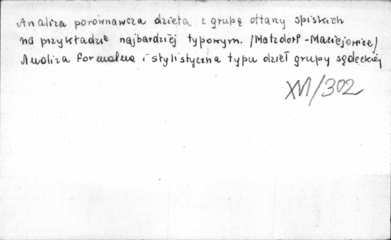 Analiza porównawcza dzieła z grupą ołtarzy spiskich
na przykładzie najbardziej typowym. /Matzdorf - Maciejowice/
Analiza formalna i stylistyczna typu dzieł grupy sądeckiej
XVI/302